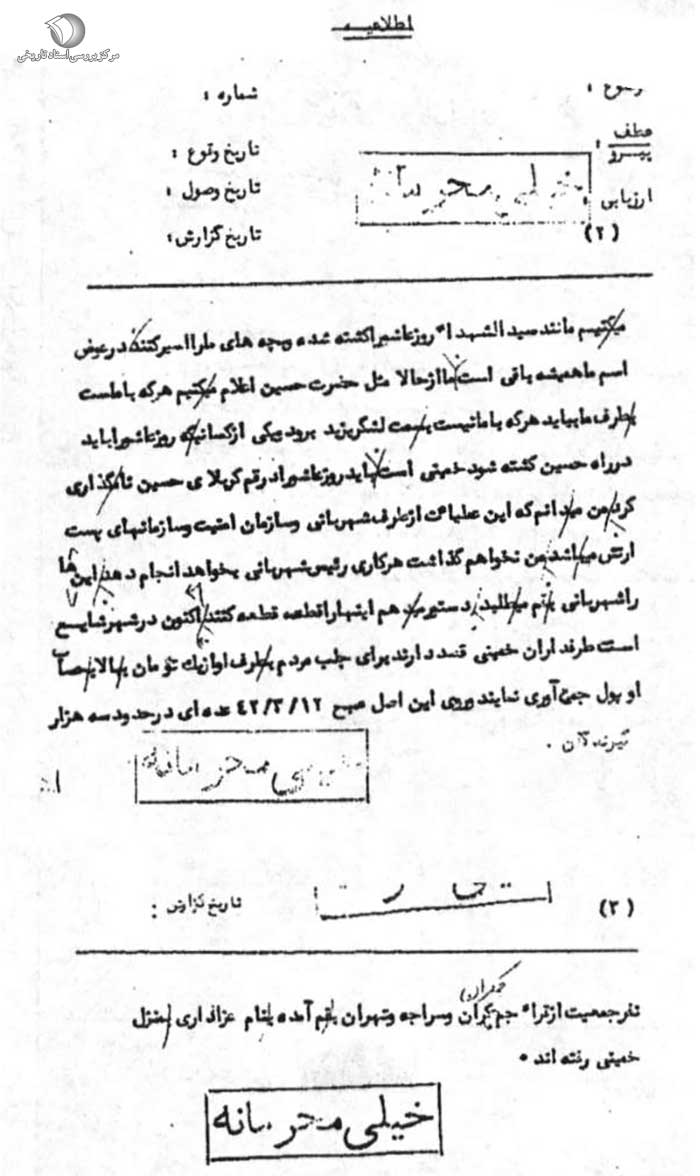 مرکز بررسی اسناد تاریخی
اطلاعیه
شماره :
عطف
پیرو :
تاریخ وقوع :
تاریخ وصول :
ارزیابی :
خیلی محرمانه
تاریخ گزارش :
(۲)
میکنیم مانند سید الشهداء روز عاشورا کشته شده و بچه های ما را اسیر کنند در عوض
اسم ما همیشه باقی است ما از حالا مثل حضرت حسین اعلام میکنیم هر که با ماست
بطرف ما بیاید هر که با ما نیست بسمت لشگر یزید برود یکی از کسانیکه روز عاشورا باید
در راه حسین کشته شود خمینی است باید روز عاشورا در قم کربلای حسین نامگذاری
کرد من میدانم که این عملیات از طرف شهربانی و سازمان امنیت و سازمانهای پست
ارتش میباشد من نخواهم گذاشت هر کاری رئیس شهربانی بخواهد انجام دهد این ها
را شهربانی بقم میطلبد دستور میدهم اینها را قطعه قطعه کنند اکنون در شهر شایع
است طرفداران خمینی قصد دارند برای جلب مردم بطرف او از یک تومان ببالا بحساب
او پول جمع آوری نمایند و روی این اصل صبح ۴۲/۳/۱۲ عده ای در حدود سه هزار
خیلی محرمانه
(۳)
تاریخ گزارش :
جمکران
نفر جمعیت از قراء جم کران و سراجه و تهران بقم آمده بنام عزاداری بمنزل
خمینی رفته اند .
خیلی محرمانه